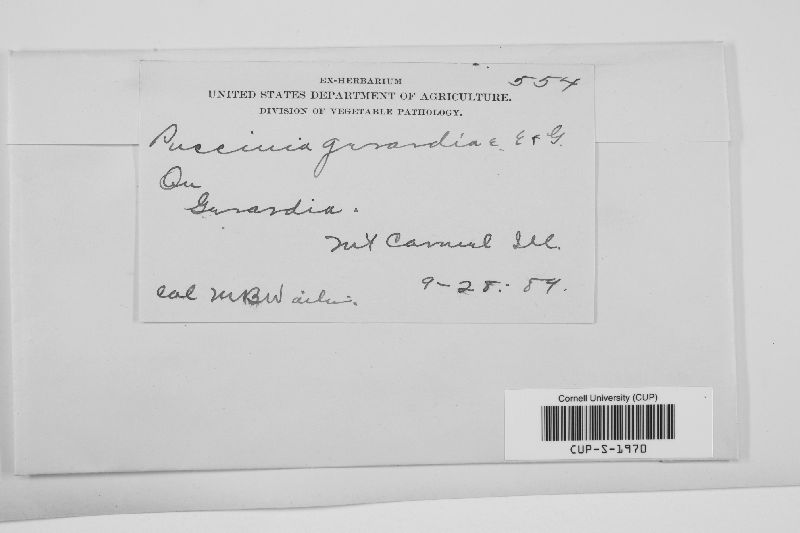 EX-HERBARIUM
554
UNITED STATES DEPARTMENT OF AGRICULTURE.
DIVISION OF VEGETABLE PATHOLOGY.
Puccinia gerardiae E & G.
On
Gerardia.
Mt Carmel Ill.
col M B Waite. 9-28-89.
Cornell University (CUP)
CUP-S-1970